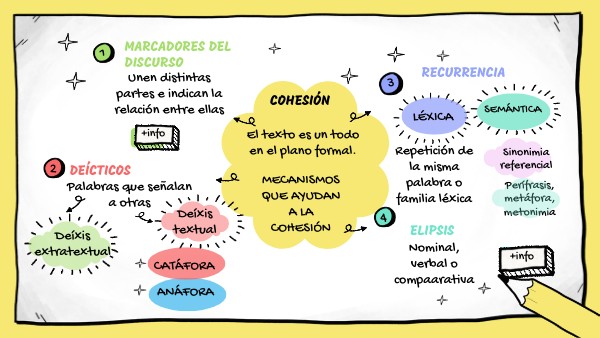 1
MARCADORES DEL
DISCURSO
Unen distintas
partes e indican la
relación entre ellas
+info
2
DEÍCTICOS
Palabras que señalan
a otras
Deíxis
extratextual
Deíxis
textual
CATÁFORA
ANÁFORA
COHESIÓN
El texto es un todo
en el plano formal.
MECANISMOS
QUE AYUDAN
A LA
COHESIÓN
3
RECURRENCIA
LÉXICA
Repetición de
la misma
palabra o
familia léxica
SEMÁNTICA
Sinonimia
referencial
Perífrasis,
metáfora,
metonimia
4
ELIPSIS
Nominal,
verbal o
compaarativa
+info